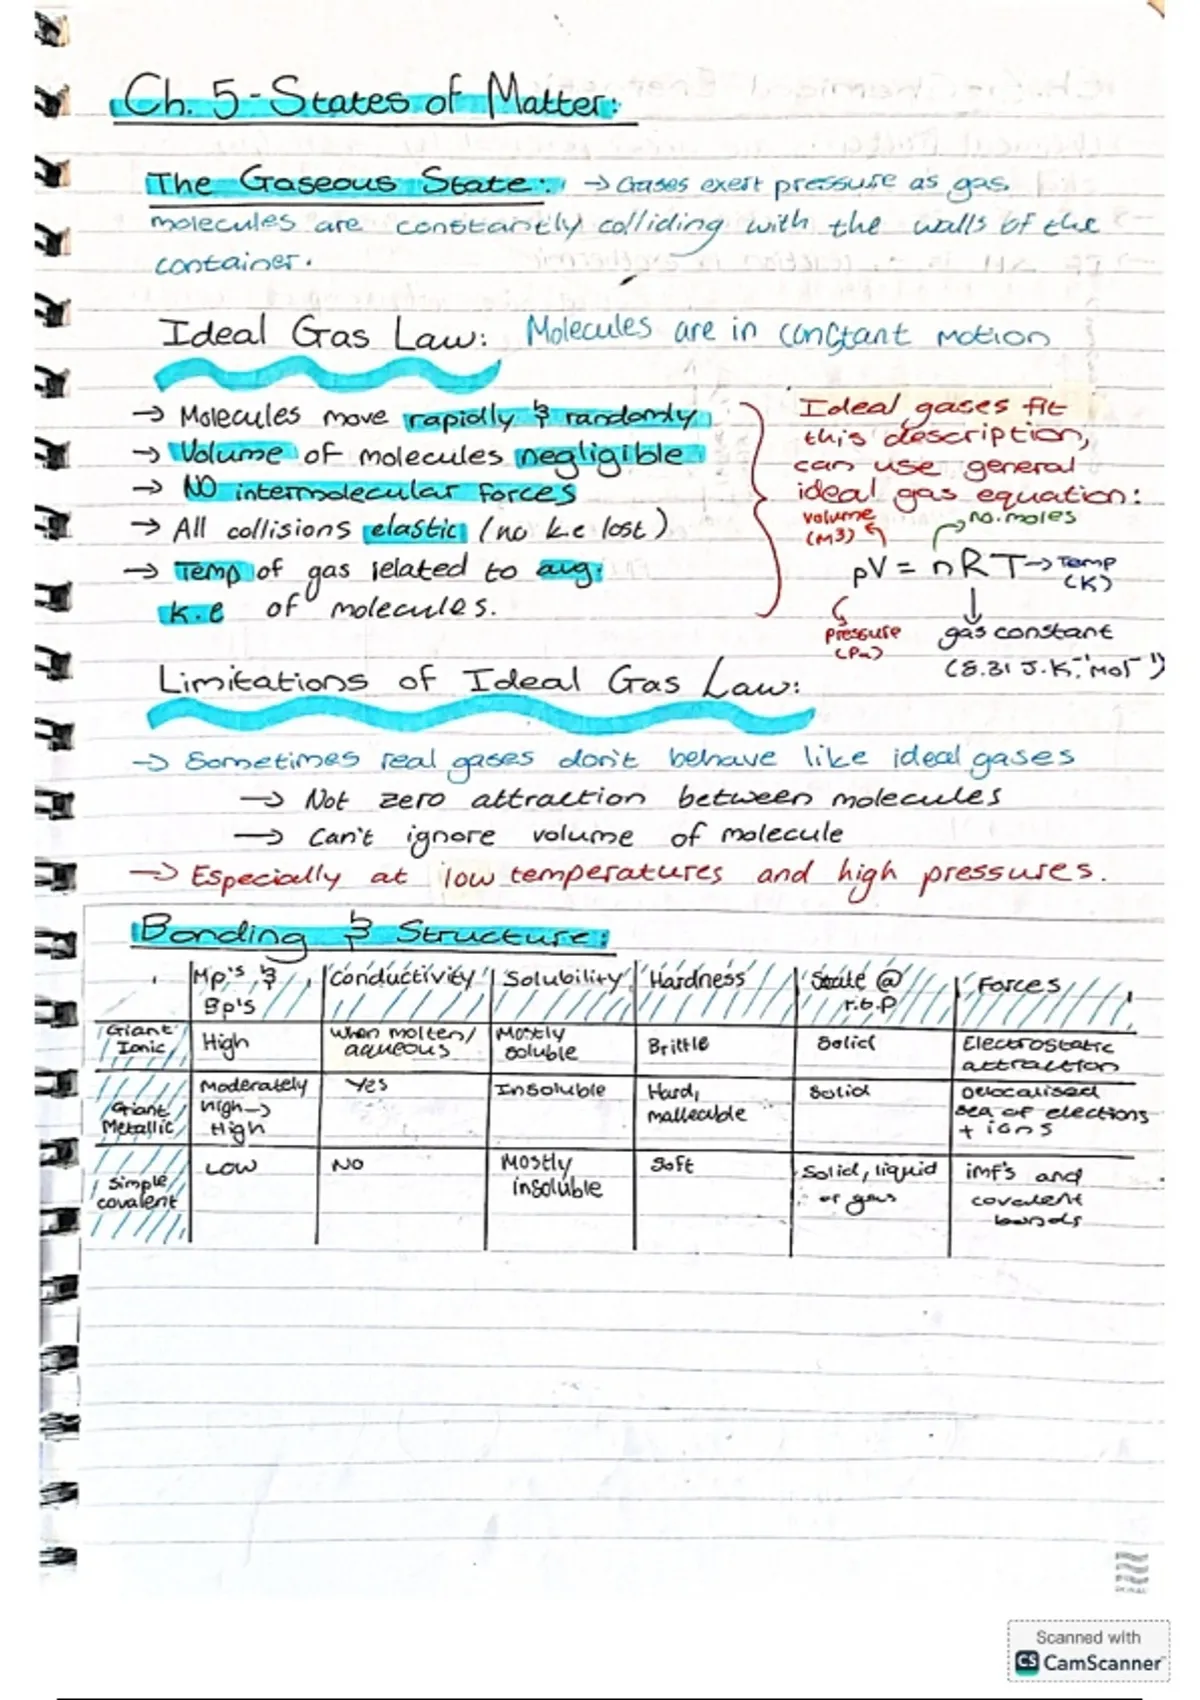 Ch. 5 - States of Matter:
The Gaseous State: → Gases exert pressure as gas
molecules are constantly colliding with the walls of the
container.
Ideal Gas Law: Molecules are in constant motion
→ Molecules move rapidly & randomly
→ Volume of molecules negligible
→ NO intermolecular forces
→ All collisions elastic (no k.e lost)
→ Temp of gas related to avg.
k.e of molecules.
Ideal gases fit
this description,
can use general
ideal gas equation:
volume
(M3)
no. moles
pV = nRT → Temp
(K)
pressure
(Pa)
gas constant
(8.31 J.K⁻¹mol⁻¹)
Limitations of Ideal Gas Law:
→ Sometimes real gases don't behave like ideal gases
→ Not zero attraction between molecules
→ Can't ignore volume of molecule
→ Especially at low temperatures and high pressures.
Bonding & Structure:
Mp's & Bp's | Conductivity | Solubility | Hardness | State @ r.t.p | Forces
Giant Ionic | High | when molten/ aqueous | Mostly soluble | Brittle | Solid | Electrostatic attraction
Giant Metallic | Moderately high → High | Yes | Insoluble | Hard, malleable | Solid | Delocalised sea of electrons + ions
Simple covalent | Low | No | Mostly insoluble | Soft | Solid, liquid or gas | imf's and covalent bonds
Scanned with
CS CamScanner